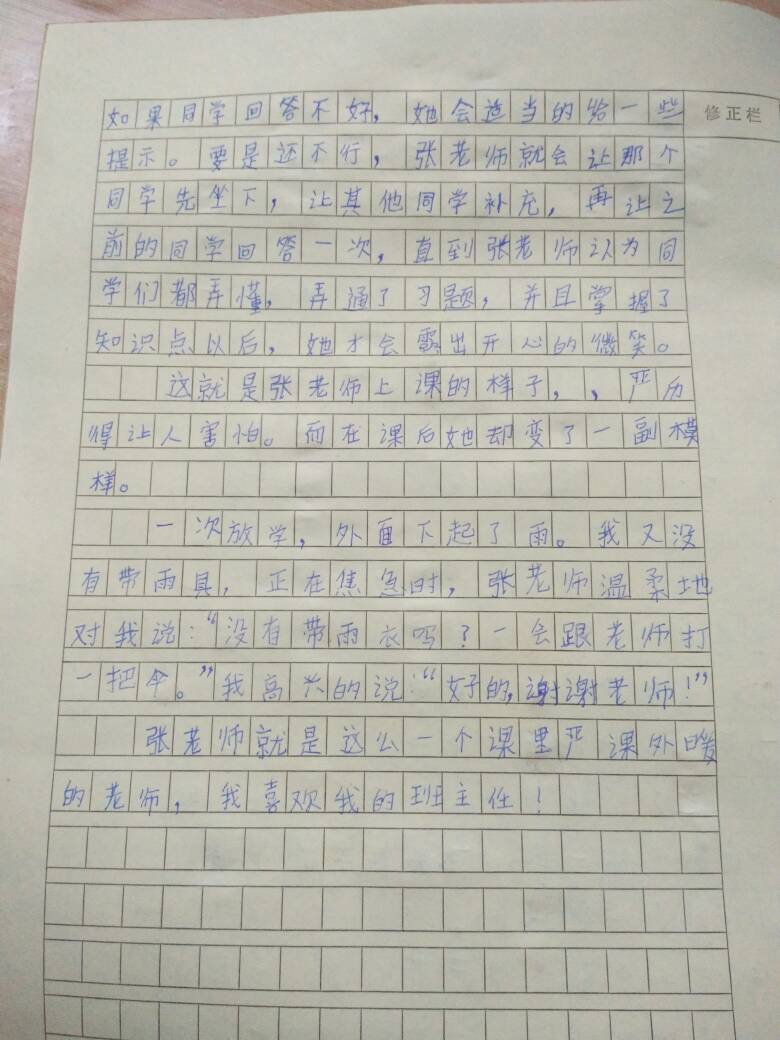 如果同学回答不好，她会适当的给一些
修正栏
提示。要是还不行，张老师就会让那个
同学先坐下，让其他同学补充，再让之
前的同学回答一次，直到张老师认为同
学们都弄懂，弄通了习题，并且掌握了
知识点以后，她才会露出开心的微笑。
这就是张老师上课的样子，，严历
得让人害怕。而在课后她却变了一副模
样。
一次放学，外面下起了雨。我又没
有带雨具，正在焦急时，张老师温柔地
对我说：“没有带雨衣吗？一会跟老师打
一把伞。”我高兴的说：“好的，谢谢老师！”
张老师就是这么一个课里严课外暖
的老师，我喜欢我的班主任！